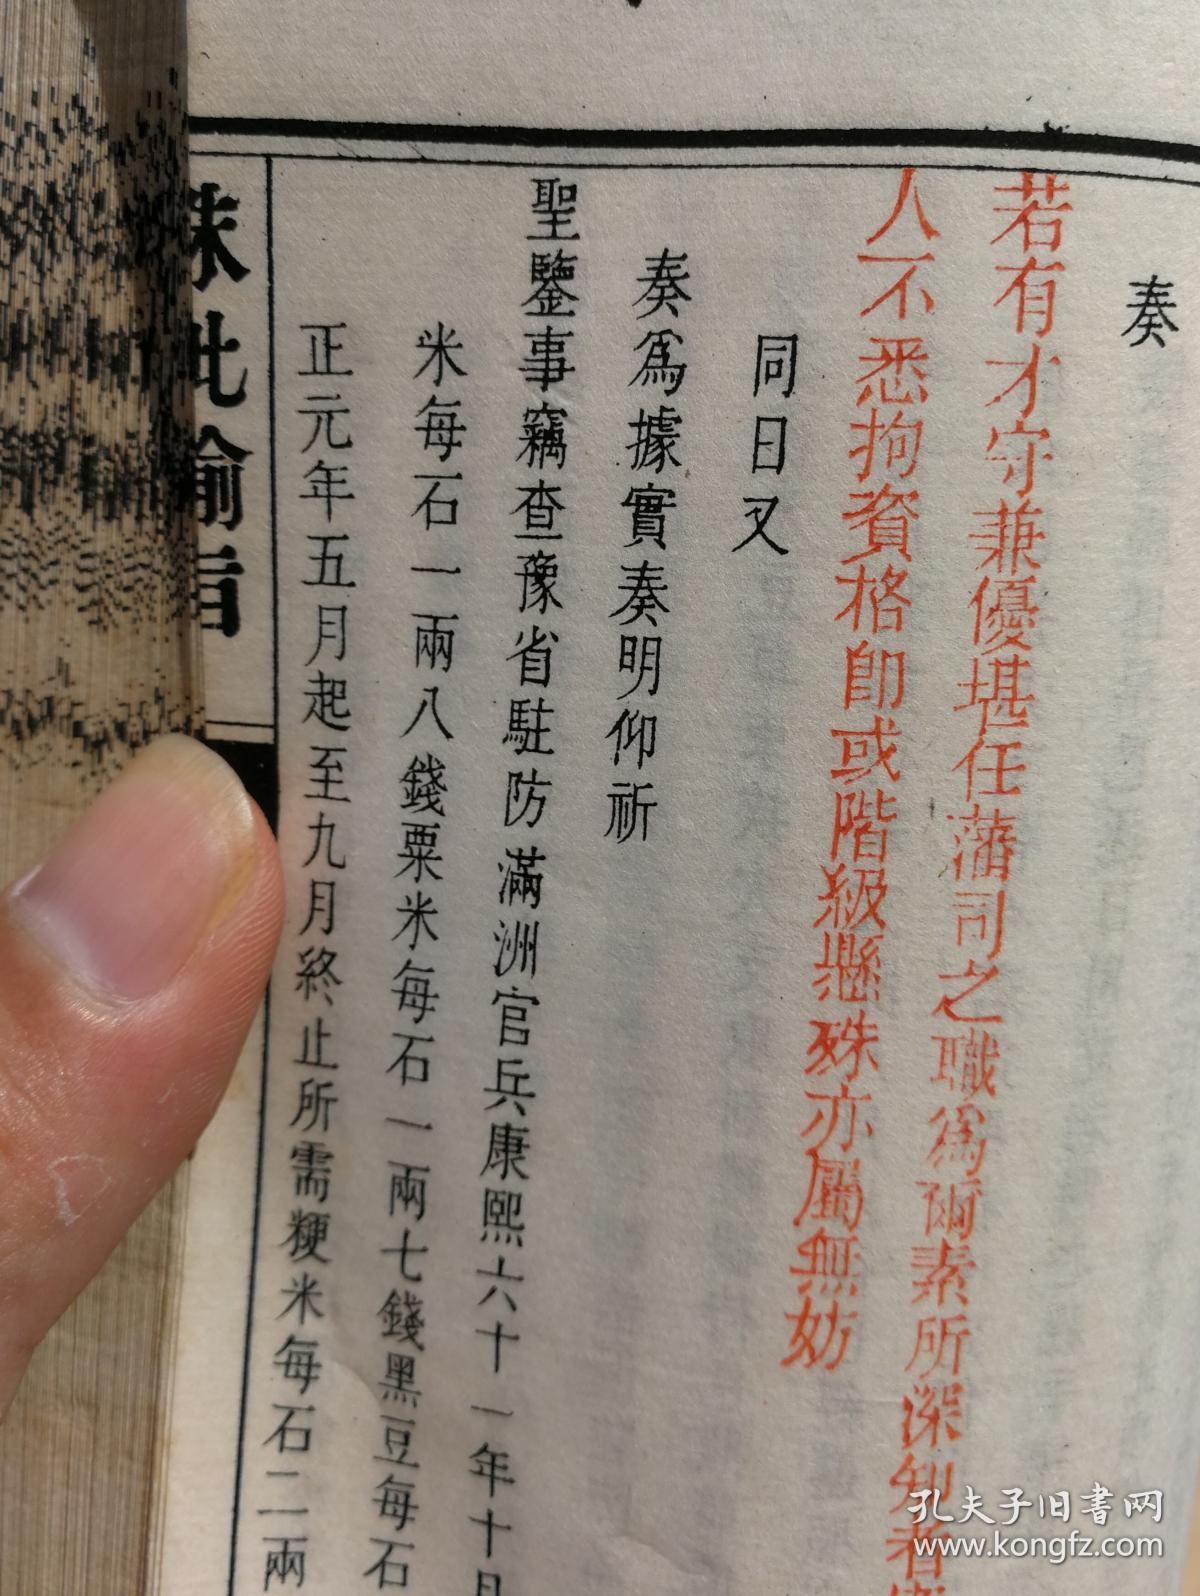 奏
若有才守兼優堪任藩司之職爲爾素所深知者
人不悉拘資格即或階級懸殊亦屬無妨
同日又
奏爲據實奏明仰祈
聖鑒事竊查豫省駐防滿洲官兵康熙六十一年十月
米每石一兩八錢粟米每石一兩七錢黑豆每石
正元年五月起至九月終止所需粳米每石二兩
硃批諭旨
孔夫子旧书网
www.kongfz.com